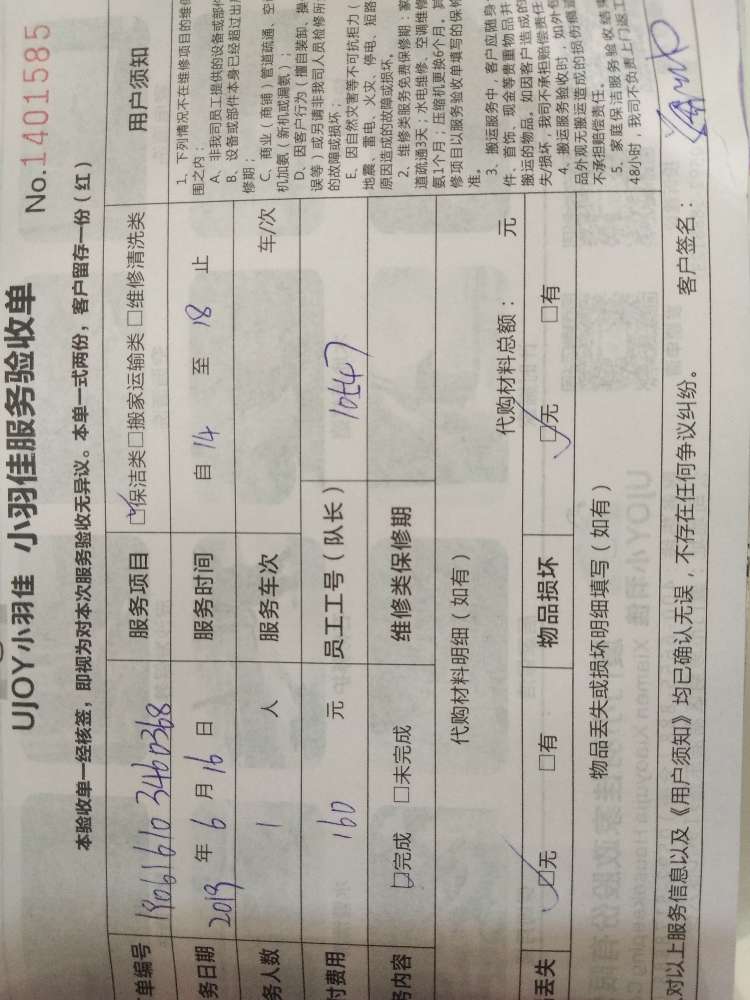 UJOY小羽佳 小羽佳服务验收单
No.1401585
本验收单一经核签，即视为对本次服务验收无异议。本单一式两份，客户留存一份（红）
单编号
服务项目 ☑保洁类□搬家运输类□维修清洗类
务日期 2019 年 6 月 16 日 服务时间 自 14 至 18 止
务人数 1 人 服务车次 车/次
付费用 160 元 员工工号（队长）
务内容 ☑完成 □未完成 维修类保修期
代购材料明细（如有） 代购材料总额： 元
丢失 ☑无 □有 物品损坏 ☑无 □有
物品丢失或损坏明细填写（如有）
用户须知
1. 下列情况不在维修项目的维
围之内：
A、非我司员工提供的设备或部
B、设备或部件本身已经超过出
修期；
C、商业（商铺）管道疏通、空
机加氨（新机或漏氨）；
D、因客户行为（擅自装卸、操
误等）或另请非我司人员检修所
的故障或损坏；
E、因自然灾害等不可抗拒力（
地震、雷电、火灾、停电、短路
原因造成的故障或损坏。
2、维修类服务免费保修期：家
道疏通3天；水电维修、空调维修
氨1个月；压缩机更换6个月。其
修项目以服务验收单填写的保修
准。
3、搬运服务中，客户应随身
件、首饰、现金等贵重物品并
搬运的物品，如因客户造成的
失/损坏，我司不承担赔偿责任
4、搬运服务验收时，如外包
品外观无搬运造成的损伤痕迹
不承担赔偿责任。
5、家庭保洁服务验收结束
48小时，我司不负责上门返工
对以上服务信息以及《用户须知》均已确认无误，不存在任何争议纠纷。 客户签名：